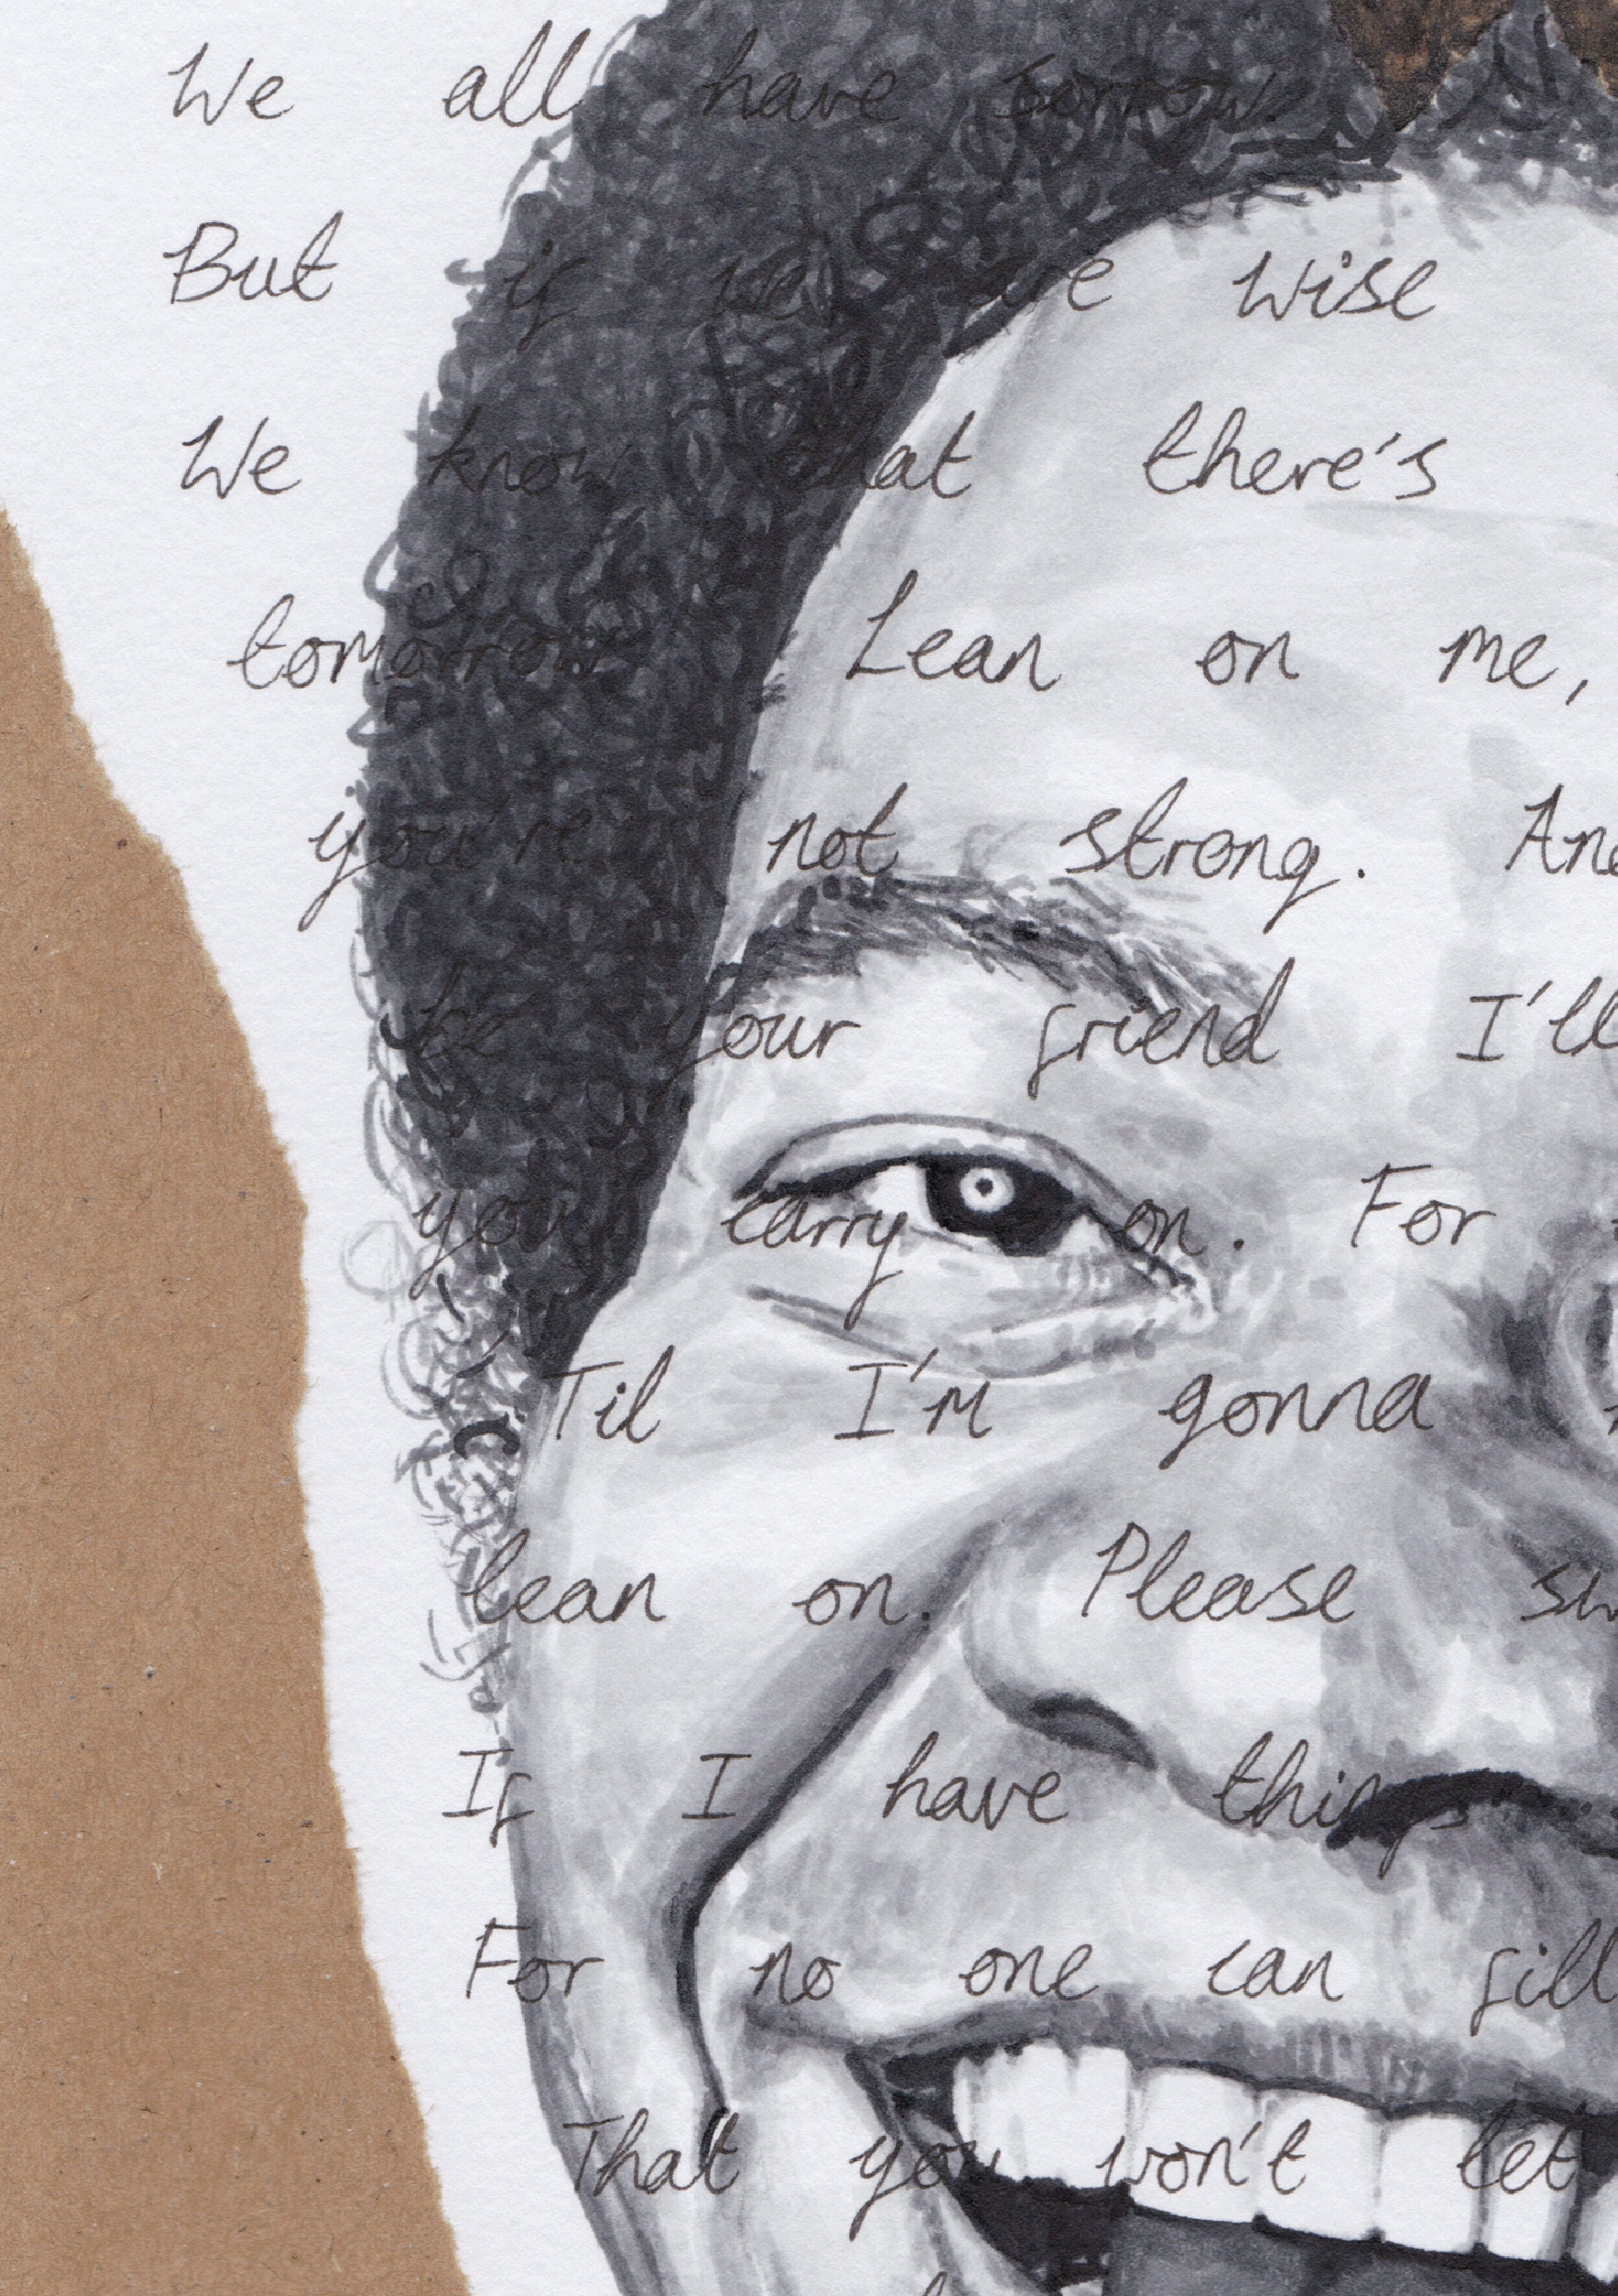 We all have sorrow.
But if we are wise
We know that there's
tomorrow Lean on me,
you're not strong. And
be your friend I'll
you carry on. For
'Til I'm gonna
lean on. Please
If I have things
For no one can fill
That you won't let